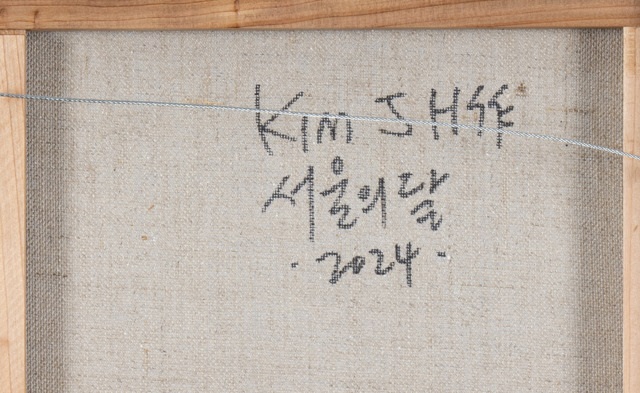 KIM J H 作
서울의 달
· 2024 ·